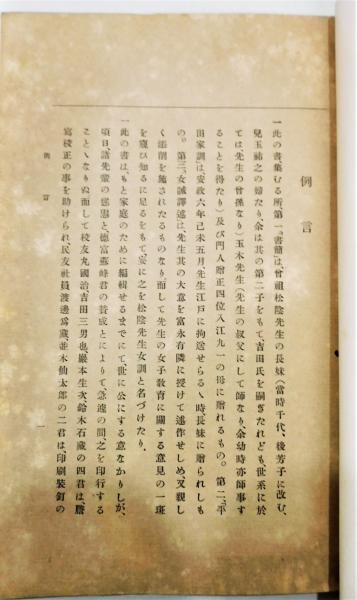 例言
一此の書、集むる所、第一「書簡」は、曾祖松陰先生の長妹（當時千代、後芳子に改む、
兒玉祐之の婦たり、余は其の第二子をもて、吉田氏を嗣ぎたれども、世系に於
ては、先生の曾孫なり）玉木先生（先生の叔父にして師なり、余幼時亦師事す
ることを得たり）及び門人贈正四位入江九一の母に贈れるもの。第二、「平
田家訓」は安政六年己未五月先生江戸に拘送せらるゝ時長妹に贈られしも
の。第三、「女誡譯述」は、先生其の大意を富永有隣に授けて述作せしめ、又親し
く添削を施されたるものなり、而して先生の女子教育に關する意見の一斑
を窺ひ知るに足るをもて、妄に之を松陰先生女訓と名づけたり。
一此の書は、もと家庭のために編輯せるまでにて世に公にする意なかりしが、
頃日、諸先輩の慫慂と、德富蘇峰君の賛成とによりて、急遽の間之を印行する
ことゝなりぬ而して校友丸國治、吉田三男也、嚴本生次、鈴木石藏の四君は、謄
寫校正の事を助けられ、民友社員渡邊爲藏、並木仙太郎の二君は、印刷裝釘の
例言
一